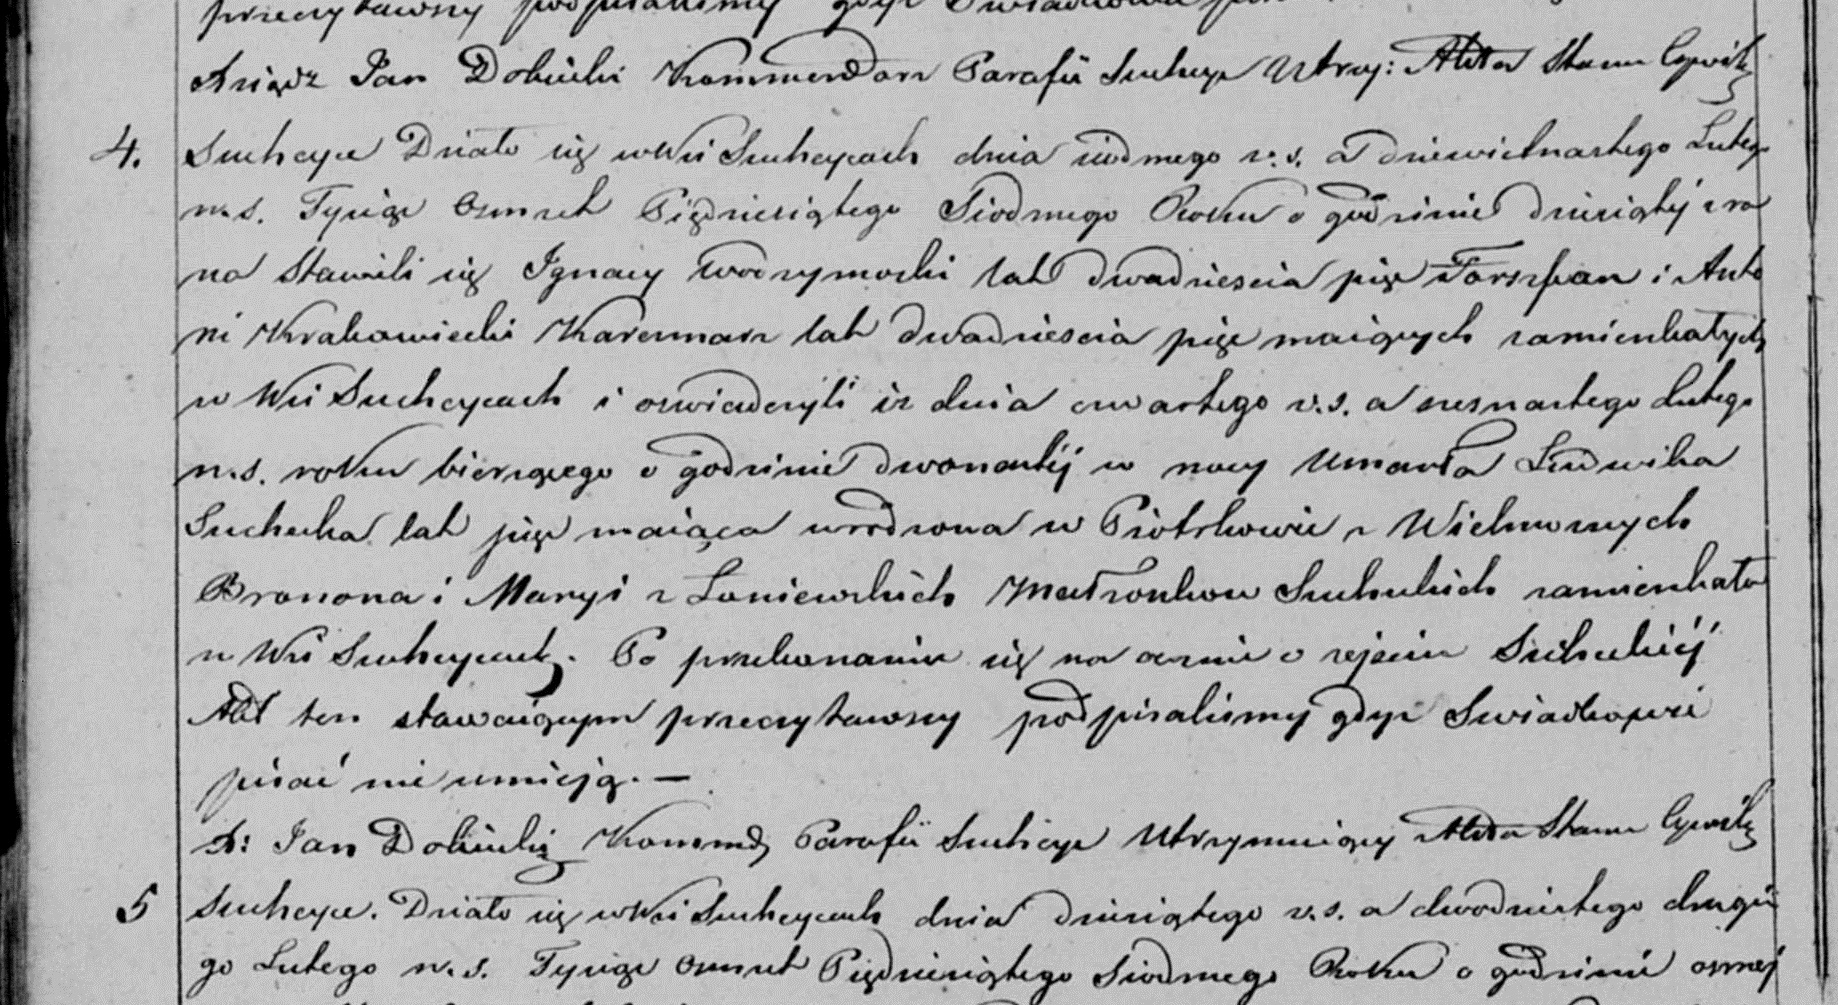 przeczytawszy podpisaliśmy gdyż Swiadkowie
Xsiądz Jan Dobiecki Kommendarz Parafii Suchcye Utrzy: Akta Stanu Cywil:
4. Suchcyce Działo się w Wsi Suchcycach dnia siodmego v. s. a dziewietnastego Lutego
n. s. Tysiąc Osmset Pięździesiątego Siodmego Roku o godzinie dziesiątej z ra
na Stawili się Ignacy Wodzymoski lat dwadziescia pięc Forszpan i Anto
ni Krakowiecki Karczmarz lat dwadziescia pięc maiących zamieszkałych
w Wsi Suchcycach i oswiadczyli iż dnia czwartego v. s. a szesnastego Lutego
n. s. roku bierzącego o godzinie dwonastej w nocy Umarła Ludwika
Suchecka lat pięc maiąca urodzona w Piotrkowie z Wielmoznych
Bronona i Maryi z Loniewskich Małzonkow Sucheckich zamieszkała
w Wsi Suchcycach. Po przekonaniu się na ocznie o zejsciu Sucheckiej
Akt ten stawaiącym przeczytawszy podpisalismy gdyż Swiadkowie
pisać nie umieją. —
X: Jan Dobiecki Kommed Parafii Suchcyc Utrzymuiący Akta Stanu Cywil:
5 Suchcyce. Działo się w Wsi Suchcycach dnia dziesiątego v. s. a dwodziestego drugie
go Lutego n. s. Tysiąc Osmset Pięździesiątego Siodmego Roku o godzinie osmej